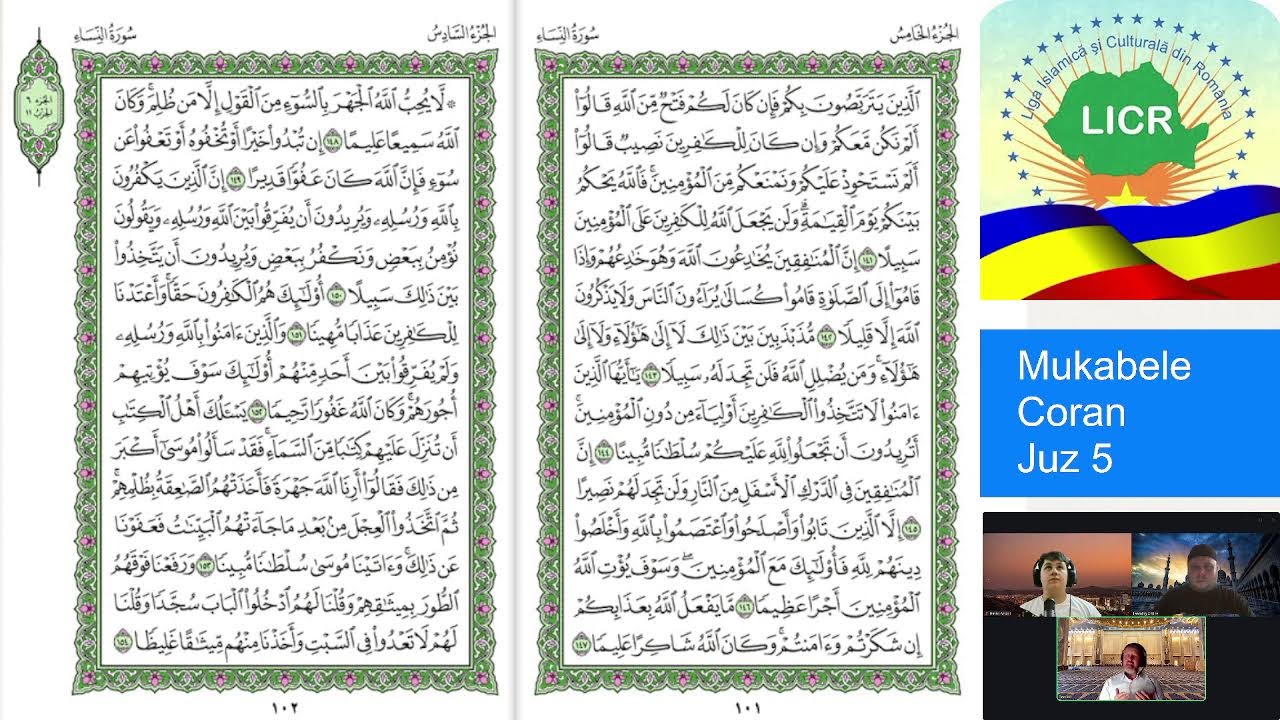 الجزء الخامس
سورة النساء
الَّذِينَ يَتَرَبَّصُونَ بِكُمْ فَإِن كَانَ لَكُمْ فَتْحٌ مِّنَ اللَّهِ قَالُوٓا۟
أَلَمْ نَكُن مَّعَكُمْ وَإِن كَانَ لِلْكَٰفِرِينَ نَصِيبٌ قَالُوٓا۟
أَلَمْ نَسْتَحْوِذْ عَلَيْكُمْ وَنَمْنَعْكُم مِّنَ الْمُؤْمِنِينَ ۚ فَاللَّهُ يَحْكُمُ
بَيْنَكُمْ يَوْمَ الْقِيَٰمَةِ ۗ وَلَن يَجْعَلَ اللَّهُ لِلْكَٰفِرِينَ عَلَى الْمُؤْمِنِينَ
سَبِيلًا ١٤١ إِنَّ الْمُنَٰفِقِينَ يُخَٰدِعُونَ اللَّهَ وَهُوَ خَٰدِعُهُمْ وَإِذَا
قَامُوٓا۟ إِلَى الصَّلَوٰةِ قَامُوا۟ كُسَالَىٰ يُرَآءُونَ النَّاسَ وَلَا يَذْكُرُونَ
اللَّهَ إِلَّا قَلِيلًا ١٤٢ مُّذَبْذَبِينَ بَيْنَ ذَٰلِكَ لَآ إِلَىٰ هَٰٓؤُلَآءِ وَلَآ إِلَىٰ
هَٰٓؤُلَآءِ ۚ وَمَن يُضْلِلِ اللَّهُ فَلَن تَجِدَ لَهُۥ سَبِيلًا ١٤٣ يَٰٓأَيُّهَا الَّذِينَ
ءَامَنُوا۟ لَا تَتَّخِذُوا۟ الْكَٰفِرِينَ أَوْلِيَآءَ مِن دُونِ الْمُؤْمِنِينَ ۚ
أَتُرِيدُونَ أَن تَجْعَلُوا۟ لِلَّهِ عَلَيْكُمْ سُلْطَٰنًا مُّبِينًا ١٤٤ إِنَّ
الْمُنَٰفِقِينَ فِى الدَّرْكِ الْأَسْفَلِ مِنَ النَّارِ وَلَن تَجِدَ لَهُمْ نَصِيرًا
١٤٥ إِلَّا الَّذِينَ تَابُوا۟ وَأَصْلَحُوا۟ وَاعْتَصَمُوا۟ بِاللَّهِ وَأَخْلَصُوا۟
دِينَهُمْ لِلَّهِ فَأُو۟لَٰٓئِكَ مَعَ الْمُؤْمِنِينَ ۖ وَسَوْفَ يُؤْتِ اللَّهُ
الْمُؤْمِنِينَ أَجْرًا عَظِيمًا ١٤٦ مَّا يَفْعَلُ اللَّهُ بِعَذَابِكُمْ
إِن شَكَرْتُمْ وَءَامَنتُمْ ۚ وَكَانَ اللَّهُ شَاكِرًا عَلِيمًا ١٤٧
١٠١
الجزء السادس
سورة النساء
الجزء ٦
الحزب ١١
۞ لَّا يُحِبُّ اللَّهُ الْجَهْرَ بِالسُّوٓءِ مِنَ الْقَوْلِ إِلَّا مَن ظُلِمَ ۚ وَكَانَ
اللَّهُ سَمِيعًا عَلِيمًا ١٤٨ إِن تُبْدُوا۟ خَيْرًا أَوْ تُخْفُوهُ أَوْ تَعْفُوا۟ عَن
سُوٓءٍ فَإِنَّ اللَّهَ كَانَ عَفُوًّا قَدِيرًا ١٤٩ إِنَّ الَّذِينَ يَكْفُرُونَ
بِاللَّهِ وَرُسُلِهِۦ وَيُرِيدُونَ أَن يُفَرِّقُوا۟ بَيْنَ اللَّهِ وَرُسُلِهِۦ وَيَقُولُونَ
نُؤْمِنُ بِبَعْضٍ وَنَكْفُرُ بِبَعْضٍ وَيُرِيدُونَ أَن يَتَّخِذُوا۟
بَيْنَ ذَٰلِكَ سَبِيلًا ١٥٠ أُو۟لَٰٓئِكَ هُمُ الْكَٰفِرُونَ حَقًّا ۚ وَأَعْتَدْنَا
لِلْكَٰفِرِينَ عَذَابًا مُّهِينًا ١٥١ وَالَّذِينَ ءَامَنُوا۟ بِاللَّهِ وَرُسُلِهِۦ
وَلَمْ يُفَرِّقُوا۟ بَيْنَ أَحَدٍ مِّنْهُمْ أُو۟لَٰٓئِكَ سَوْفَ يُؤْتِيهِمْ
أُجُورَهُمْ ۗ وَكَانَ اللَّهُ غَفُورًا رَّحِيمًا ١٥٢ يَسْـَٔلُكَ أَهْلُ الْكِتَٰبِ
أَن تُنَزِّلَ عَلَيْهِمْ كِتَٰبًا مِّنَ السَّمَآءِ ۚ فَقَدْ سَأَلُوا۟ مُوسَىٰٓ أَكْبَرَ
مِن ذَٰلِكَ فَقَالُوٓا۟ أَرِنَا اللَّهَ جَهْرَةً فَأَخَذَتْهُمُ الصَّٰعِقَةُ بِظُلْمِهِمْ ۚ
ثُمَّ اتَّخَذُوا۟ الْعِجْلَ مِنۢ بَعْدِ مَا جَآءَتْهُمُ الْبَيِّنَٰتُ فَعَفَوْنَا
عَن ذَٰلِكَ ۚ وَءَاتَيْنَا مُوسَىٰ سُلْطَٰنًا مُّبِينًا ١٥٣ وَرَفَعْنَا فَوْقَهُمُ
الطُّورَ بِمِيثَٰقِهِمْ وَقُلْنَا لَهُمُ ادْخُلُوا۟ الْبَابَ سُجَّدًا وَقُلْنَا
لَهُمْ لَا تَعْدُوا۟ فِى السَّبْتِ وَأَخَذْنَا مِنْهُم مِّيثَٰقًا غَلِيظًا ١٥٤
١٠٢
Liga Islamică și Culturală din România
LICR
Mukabele
Coran
Juz 5